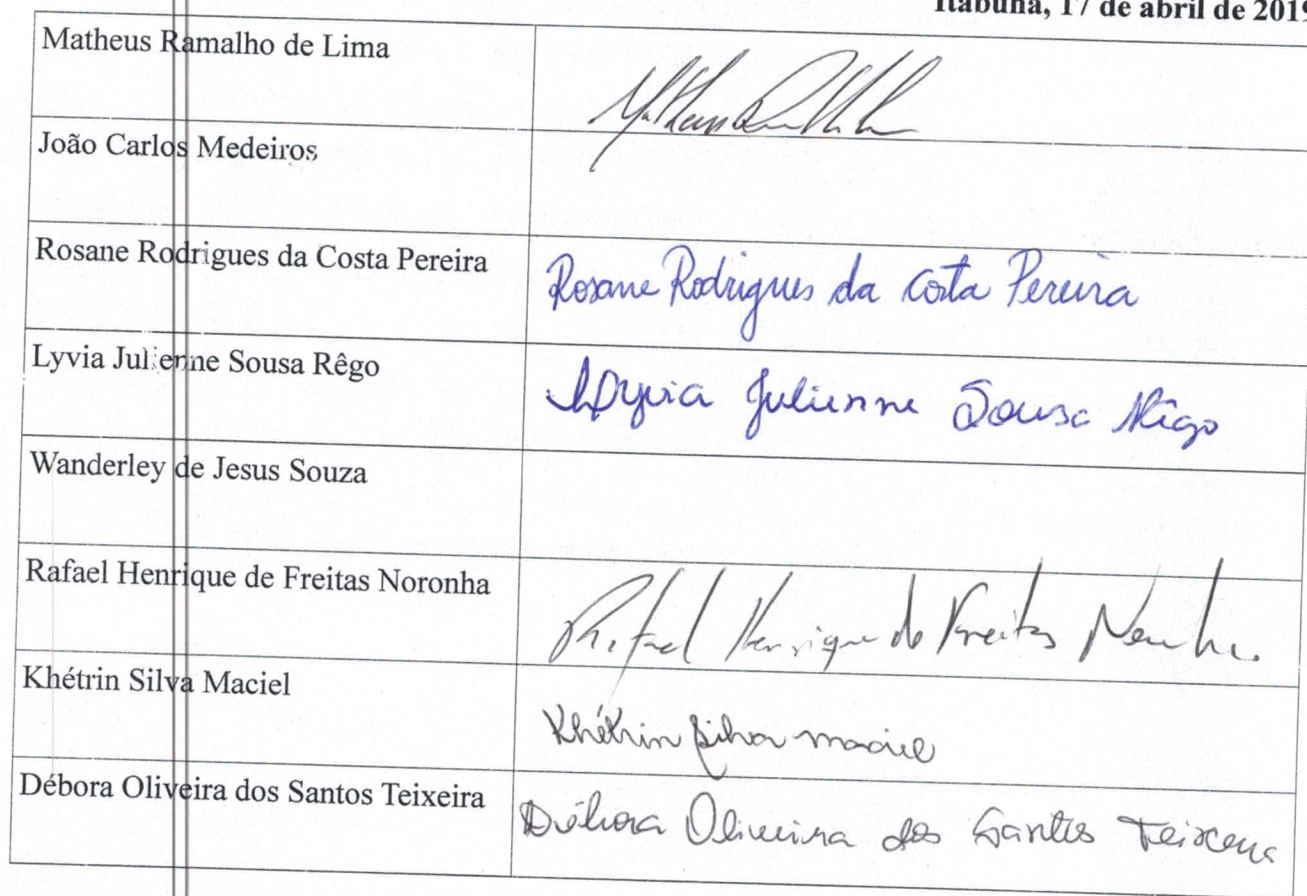 Itabuna, 17 de abril de 2019
Matheus Ramalho de Lima
João Carlos Medeiros
Rosane Rodrigues da Costa Pereira Rosane Rodrigues da Costa Pereira
Lyvia Julienne Sousa Rêgo Lyvia Julienne Sousa Rêgo
Wanderley de Jesus Souza
Rafael Henrique de Freitas Noronha Rafael Henrique de Freitas
Khétrin Silva Maciel Khétrin Silva Maciel
Débora Oliveira dos Santos Teixeira Débora Oliveira dos Santos Teixeira